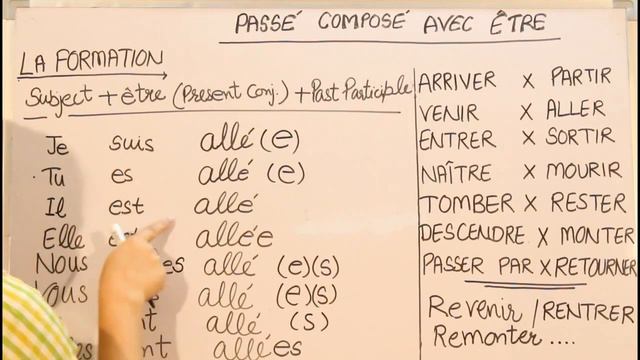 PASSÉ COMPOSÉ AVEC ÊTRE
LA FORMATION
Subject + être (Present Conj.) + Past Participle
Je suis allé (e)
Tu es allé (e)
Il est allé
Elle allée
Nous allé (e)(s)
allé (e)(s)
allé (s)
allées
ARRIVER X PARTIR
VENIR X ALLER
ENTRER X SORTIR
NAÎTRE X MOURIR
TOMBER X RESTER
DESCENDRE X MONTER
PASSER PAR X RETOURNER
Revenir / RENTRER
Remonter ....